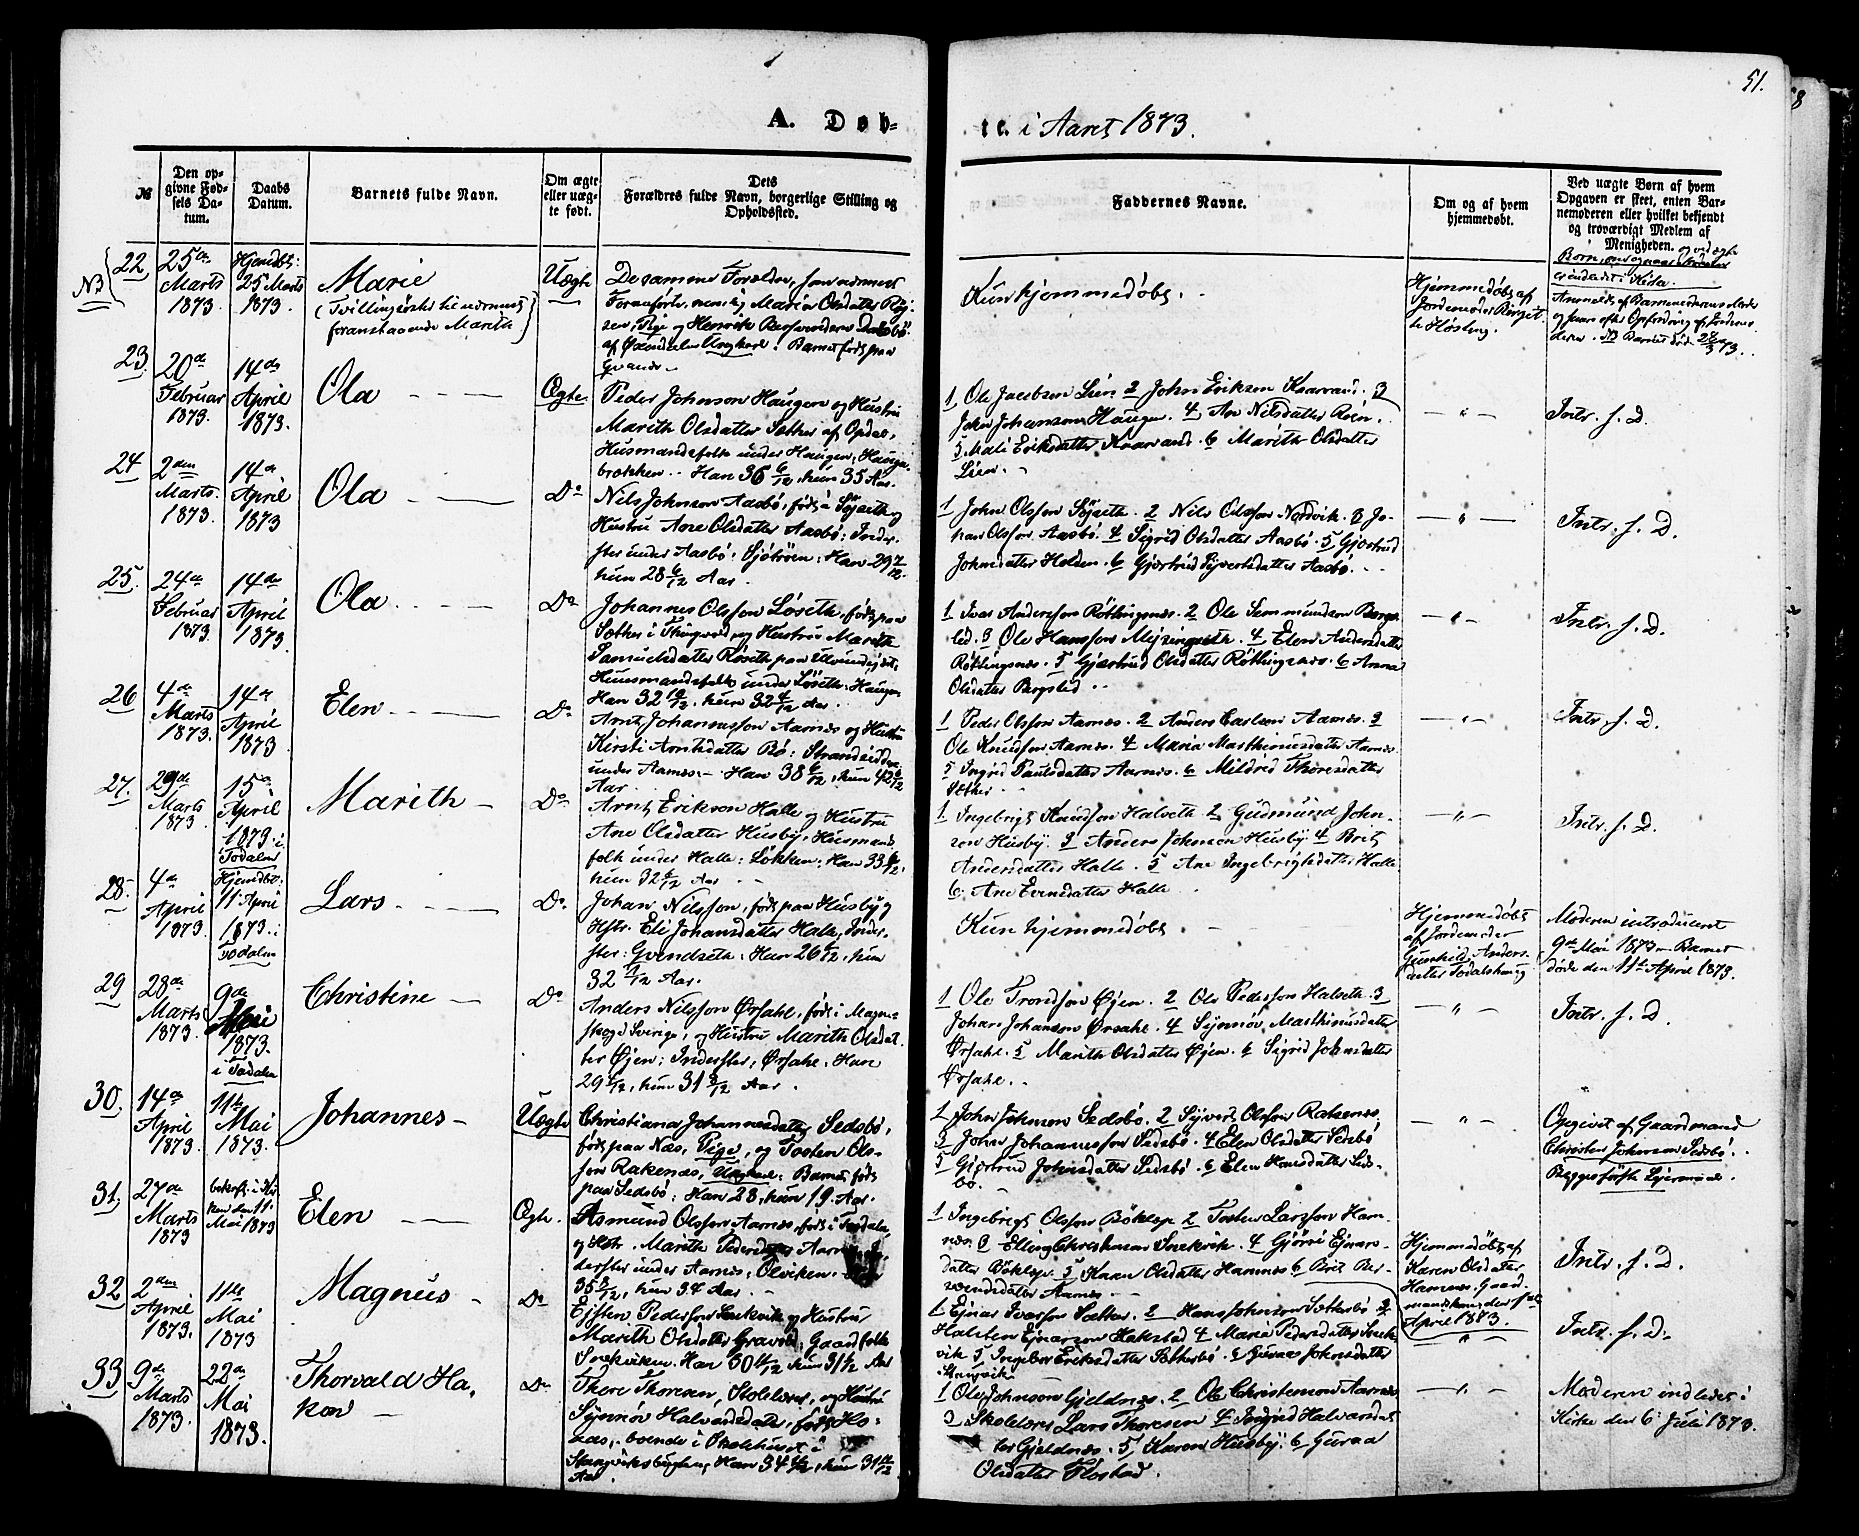 51.
A. Døb-
te. i Aaret 1873.
№
Den op-
givne Fød-
sels Da-
tum.
Daabs
Datum.
Barnets fulde Navn.
Om ægte
eller uæg-
te født.
Dets
Forældres fulde Navn, borgerlige Stilling og
Opholdssted.
Faddernes Navne.
Om og af hvem
hjemmedøbt.
Ved uægte Børn af hvem
Opgaven er skeet, enten Bar-
nemoderen eller hvilket bekjendt
og troværdigt Medlem af
Menigheden.
22
25de
Marts
1873
Hjemdbt:
25 Marts
1873.
Marie
(Tvillingsøster til nærmest
foranstaaende Marith)
Uægte
De samme Forældre, som nærmest
Foranførte, nemlig Maren Olsdatter
af Øxendalen Ungkarl. Barnet født paa
Kun hjemmedøbt.
Hjemmedøbt af
Jordemoder Birget-
te Høstmg.
23.
20de
Februar
1873.
14de
April
1873.
Ola
Ægte
Peder Johnson Haugen og Hustru
Marith Olsdatter Sæther af Opdal,
Husmandsfolk under Haugen, Hauge-
brækken. Han 36 6/12, hun 35 Aar.
1 Ole Jacobsen Lien 2 John Eriksen Kaarvand. 3
John Johansson Haugen. 4 Ane Nilsdatter Roen.
5 Mali Eriksdatter Kaarvand. 6 Marith Olsdatter
Lien.
Intr. s. D.
24
2den
Marts.
1873.
14de
April
1873
Ola
Do
Nils Johnson Aasbø, født i
Hustru Ane Olsdatter Aasbø: Inder-
ster under Aasbø: Sjøtrøen: Han 29 7/12.
hun 28 6/12 Aar.
1 John Olsson 2 Nils Olsson Nordvik. 3 Jo-
han Olsson Aasbø. 4 Sigrid Olsdatter Aasbø. 5 Gjertrud
Johnsdatter Holden. 6 Gjertrud Syvertsdatter Aasbø.
Intr. s. D.
25.
24de
Februar
1873.
14de
April
1873.
Ola
Do
Johannes Olsson Løseth, født paa
Sæther i Thingvold, og Hustru Marith
Samuelsdatter Røseth paa
Huusmandsfolk under Løseth: Haugen
Han 32 10/12, hun 32 4/12 Aar.
1 Iver Anderssen Røtlingsnæs. 2 Ole Semmundsen Bergs-
lid. 3 Ole Hansson 4 Elen Andersdatter
Røtlingsnæs. 5 Gjertrud Olsdatter Røtlingsnæs. 6 Anna
Olsdatter Bergslid.
Intr. s. D.
26
4de
Marts
1873.
14de
April
1873
Elen
Do
Arnt Johannesson Aarnes og Hustru
Kirsti Arntsdatter Bø: Strandsiddere
under Aarnes. Han 38 6/12, hun 42 6/12
Aar.
1 Peder Olsson Aarnes. 2 Anders Carlsen Aarnes. 3
Ole Knudson Aarnes. 4 Maria Mathinusdatter Aarnes.
5 Ingrid Paulsdatter Aarnes. 6 Mildrid Thoresdatter
Sæther.
Intr. s. D.
27.
29de
Marts
1873.
15de
April
1873 i
Todalen
Marith
Do
Arnt Erikson Halle og Hustru
Ane Olsdatter Husby, Husmands-
folk under Halle: Løkken: Han 33 6/12,
hun 32 6/12 Aar
1 Ingebrigt Knudson Halseth 2 Gudmund John-
sen Husby. 3 Anders Johnson Husby 4 Brit
Andersdatter Halle. 5 Ane Ingebrigtsdatter Halle
6. Ane Evensdatter Halle
Intr. s. D.
28.
4de
April
1873.
Hjemdbt:
11 April
1873.
Todalen
Lars
Do
Johan Nilsson, født paa Husby og
Hstr. Eli Johansdatter Halle, Inder-
ster: Gvendset: Han 26 6/12, hun
32 7/12 Aar.
Kun hjemmedøbt.
Hjemmedøbt
af Jordemoder
Gunhild Anders-
datter Todalshaug
Moderen introduceret
9de Mai 1873 - Barnet
døde den 11te April 1873.
29
28de
Marts
1873.
9de
Mai
1873.
i Todalen
Christine
Do
Anders Nilsson Ørsahl, født i Magn-
skog i Sverige, og Hustru Marith Olsdat-
ter Øjen: Inderster, Ørsahl. Han
29 6/12, hun 31 3/12 Aar.
1 Ole Trondson Øjen. 2 Ole Pedersson Halseth. 3
Johan Johansen Ørsahl. 4 Synnøv Mathinusdatter
Ørsahl. 5 Marith Olsdatter Øjen. 6 Sigrid Johnsdatter
Ørsahl.
Intr. s. D.
30.
14de
April
1873.
11te
Mai
1873.
Johannes
Uægte
Christiana Johannesdatter Sedsbø,
født paa Næs, Pige, og Tosten Ols-
son Rakenæs, Ungkarl. Barnet født
paa Sedsbø: Han 23, hun 19 Aar.
1 John Johnson Sedsbø. 2 Syvert Olsson Rakenæs,
3 Johan Johannesson Sedsbø. 4 Elen Olsdatter Sedsbø
5 Gjertrud Johnsdatter Sedsbø. 6 Elen Hansdatter Seds-
bø.
Opgivet af Gaardmand
Christen Johnson Sedsbø.
Begges første Leiermaal.
31.
27de
Marts
1873
bekræft. i Kir-
ken den 11.
Mai 1873
Elen
Ægte.
Asmund Olsson Aarnes, født i Todalen,
og Hstr. Marith Pedersdatter Aarnes
under Aarnes: Olviken.
35 8/12, hun 34 Aar
1 Ingebrigt Olsson Bøklep 2 Tosten Larsson Ham-
nes. 3 Elling Christiansen Snekvik. 4 Gjøri Ejnars-
datter Bøklep. 5 Karen Olsdatter Hamnes 6 Brit Ber-
svendsdatter Aarnes
Hjemmedøbt af
Karen Olsdatter
Hamnes, Gaard-
mandskone, den
April 1873.
Intr. s. D.
32
2den
April
1873.
11te
Mai
1873
Magnus
Do
Esten Pederson Snekvik og Hustru
Marith Olsdatter Gravvold, Gaardfolk
Snekviken. Han 30 11/12 hun 31 1/2 Aar
1 Ejnar Iversson Sæther. 2 Hans Johnson Sæterbø 3
Halsten Ejnarsen Hakstad 4 Maria Pedersdatter Snek-
vik 5 Ingebor Eriksdatter Sæterbø. 6 Guraa Johnsdatter
Intr. s. D.
33
9de
Marts
1873
22de
Mai
1873.
Thorvald Ha-
kon
Do
Thore Thoresen, Skolelærer, og Hustru
Synnøv Halvardsdatter, født Ho-
næs, boende i Skolehuset i
Stangviksbugten, Han 34 6/12, hun 31 11/12
Aar
1 Ole Johnson Gjeldnæs. 2 Ole Christenson Aarnes
3 Skolelærer Lars Thoresen 4 Ingrid Halvardsdat-
ter Gjeldnæs. 5 Karen Husby. 6 Guraa
Olsdatter Flostad.
Moderen indledet i
Kirke den 6 Juli 1873.